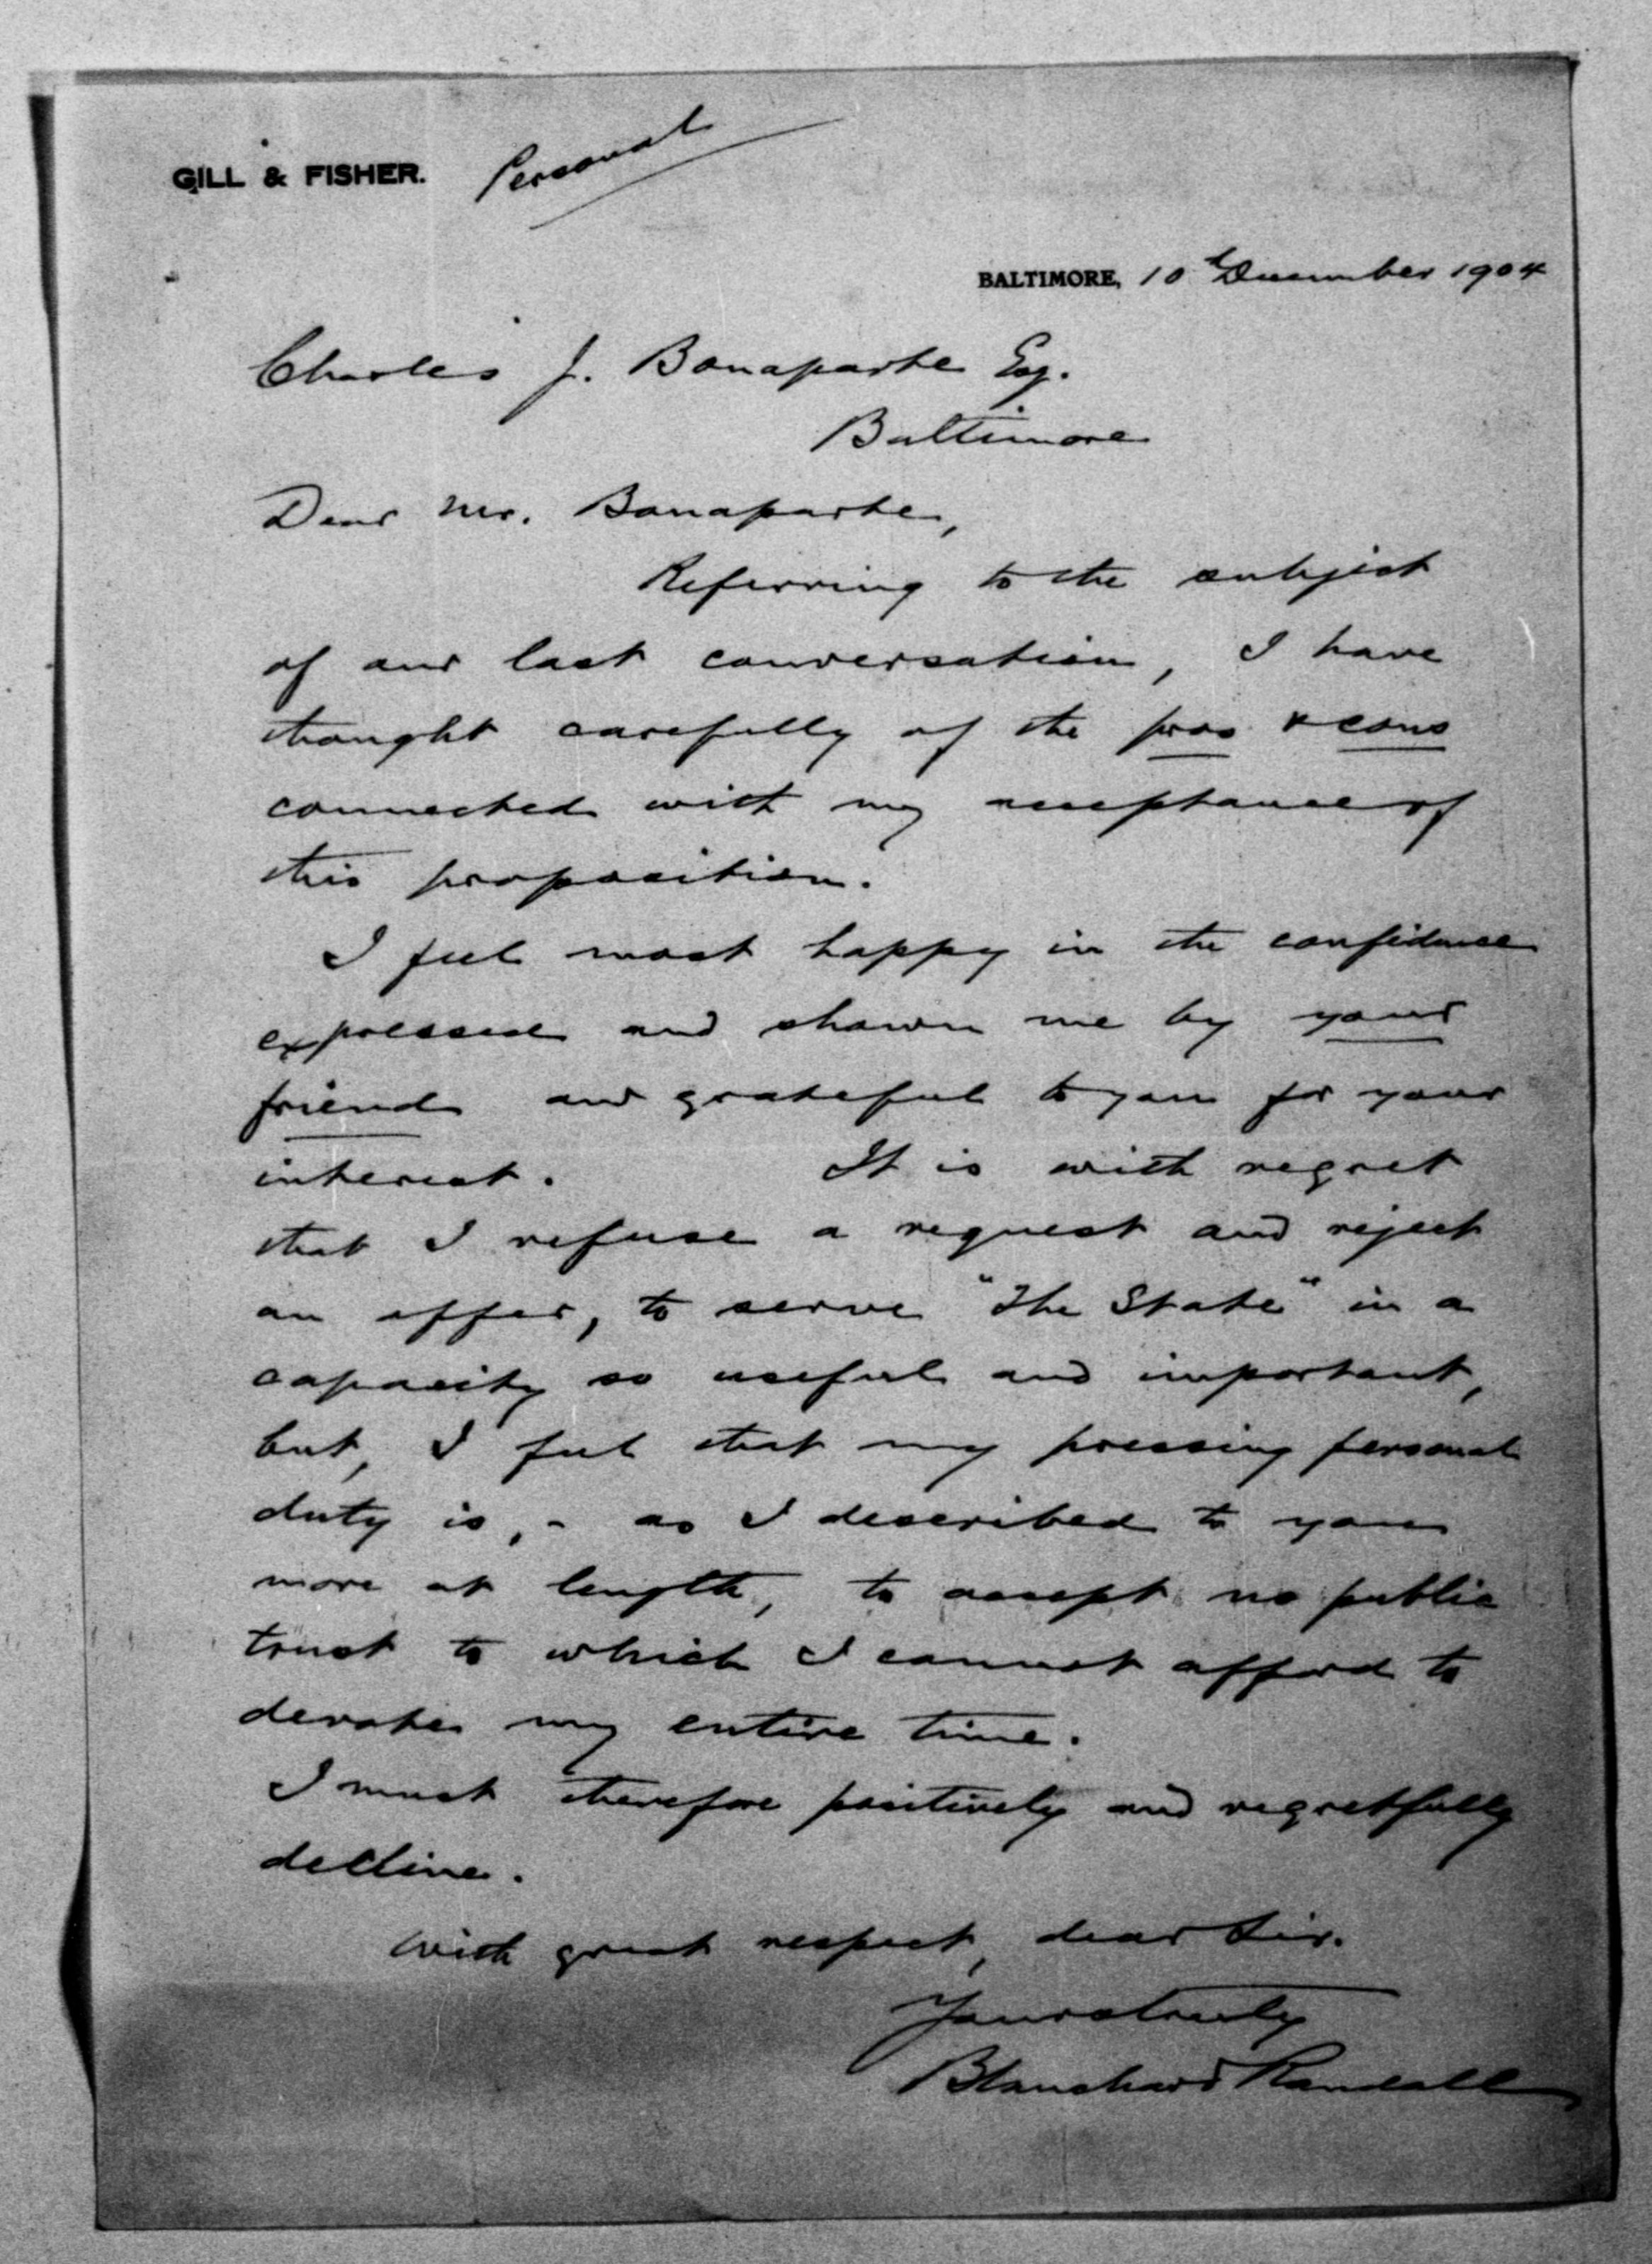 GILL & FISHER.
Personal
BALTIMORE, 10th December 1904
Charles J. Bonaparte Esq.
Baltimore
Dear Mr. Bonaparte,
Referring to the subject
of our last conversation, I have
thought carefully of the pros & cons
connected with my acceptance of
this proposition.
I feel most happy in the confidence
expressed and shown me by your
friend and grateful to you for your
interest. It is with regret
that I refuse a request and reject
an offer, to serve "The State" in a
capacity so useful and important,
but, I feel that my pressing personal
duty is, - as I described to you
more at length, to accept no public
trust to which I cannot afford to
devote my entire time.
I must therefore positively and regretfully
decline.
With great respect, dear Sir.
Yours truly
Blanchard Randall